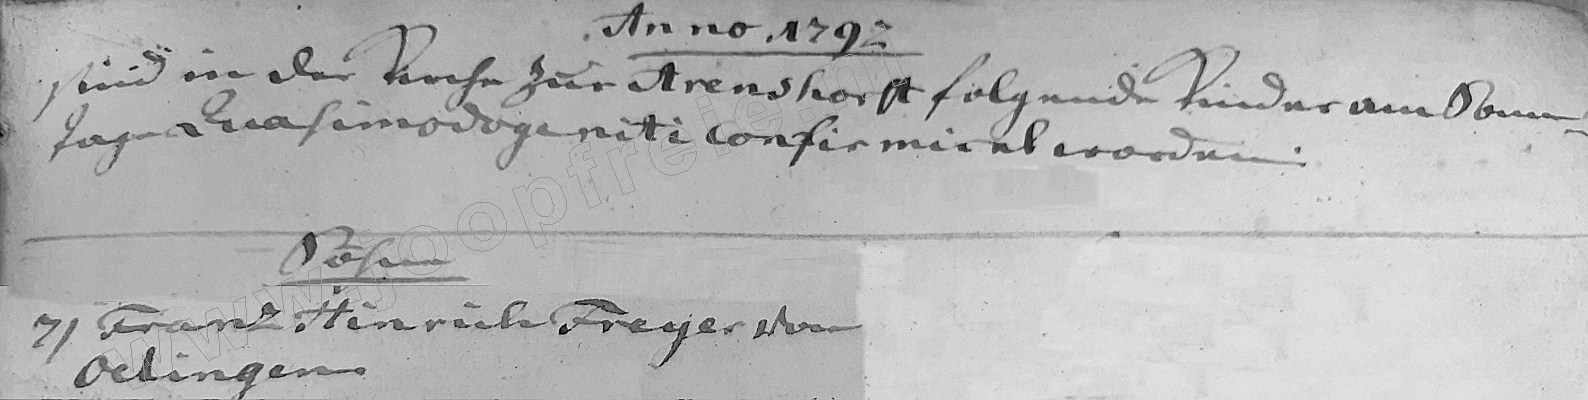 Anno 1792
sind in der Kirche zur Arenshorst folgende Kinder am Sonn-
tage Quasimodogeniti confirmiret worden:
Söhne
7) Franz Hinrich Freyer von
Oelingen
www.joopfreije.nl